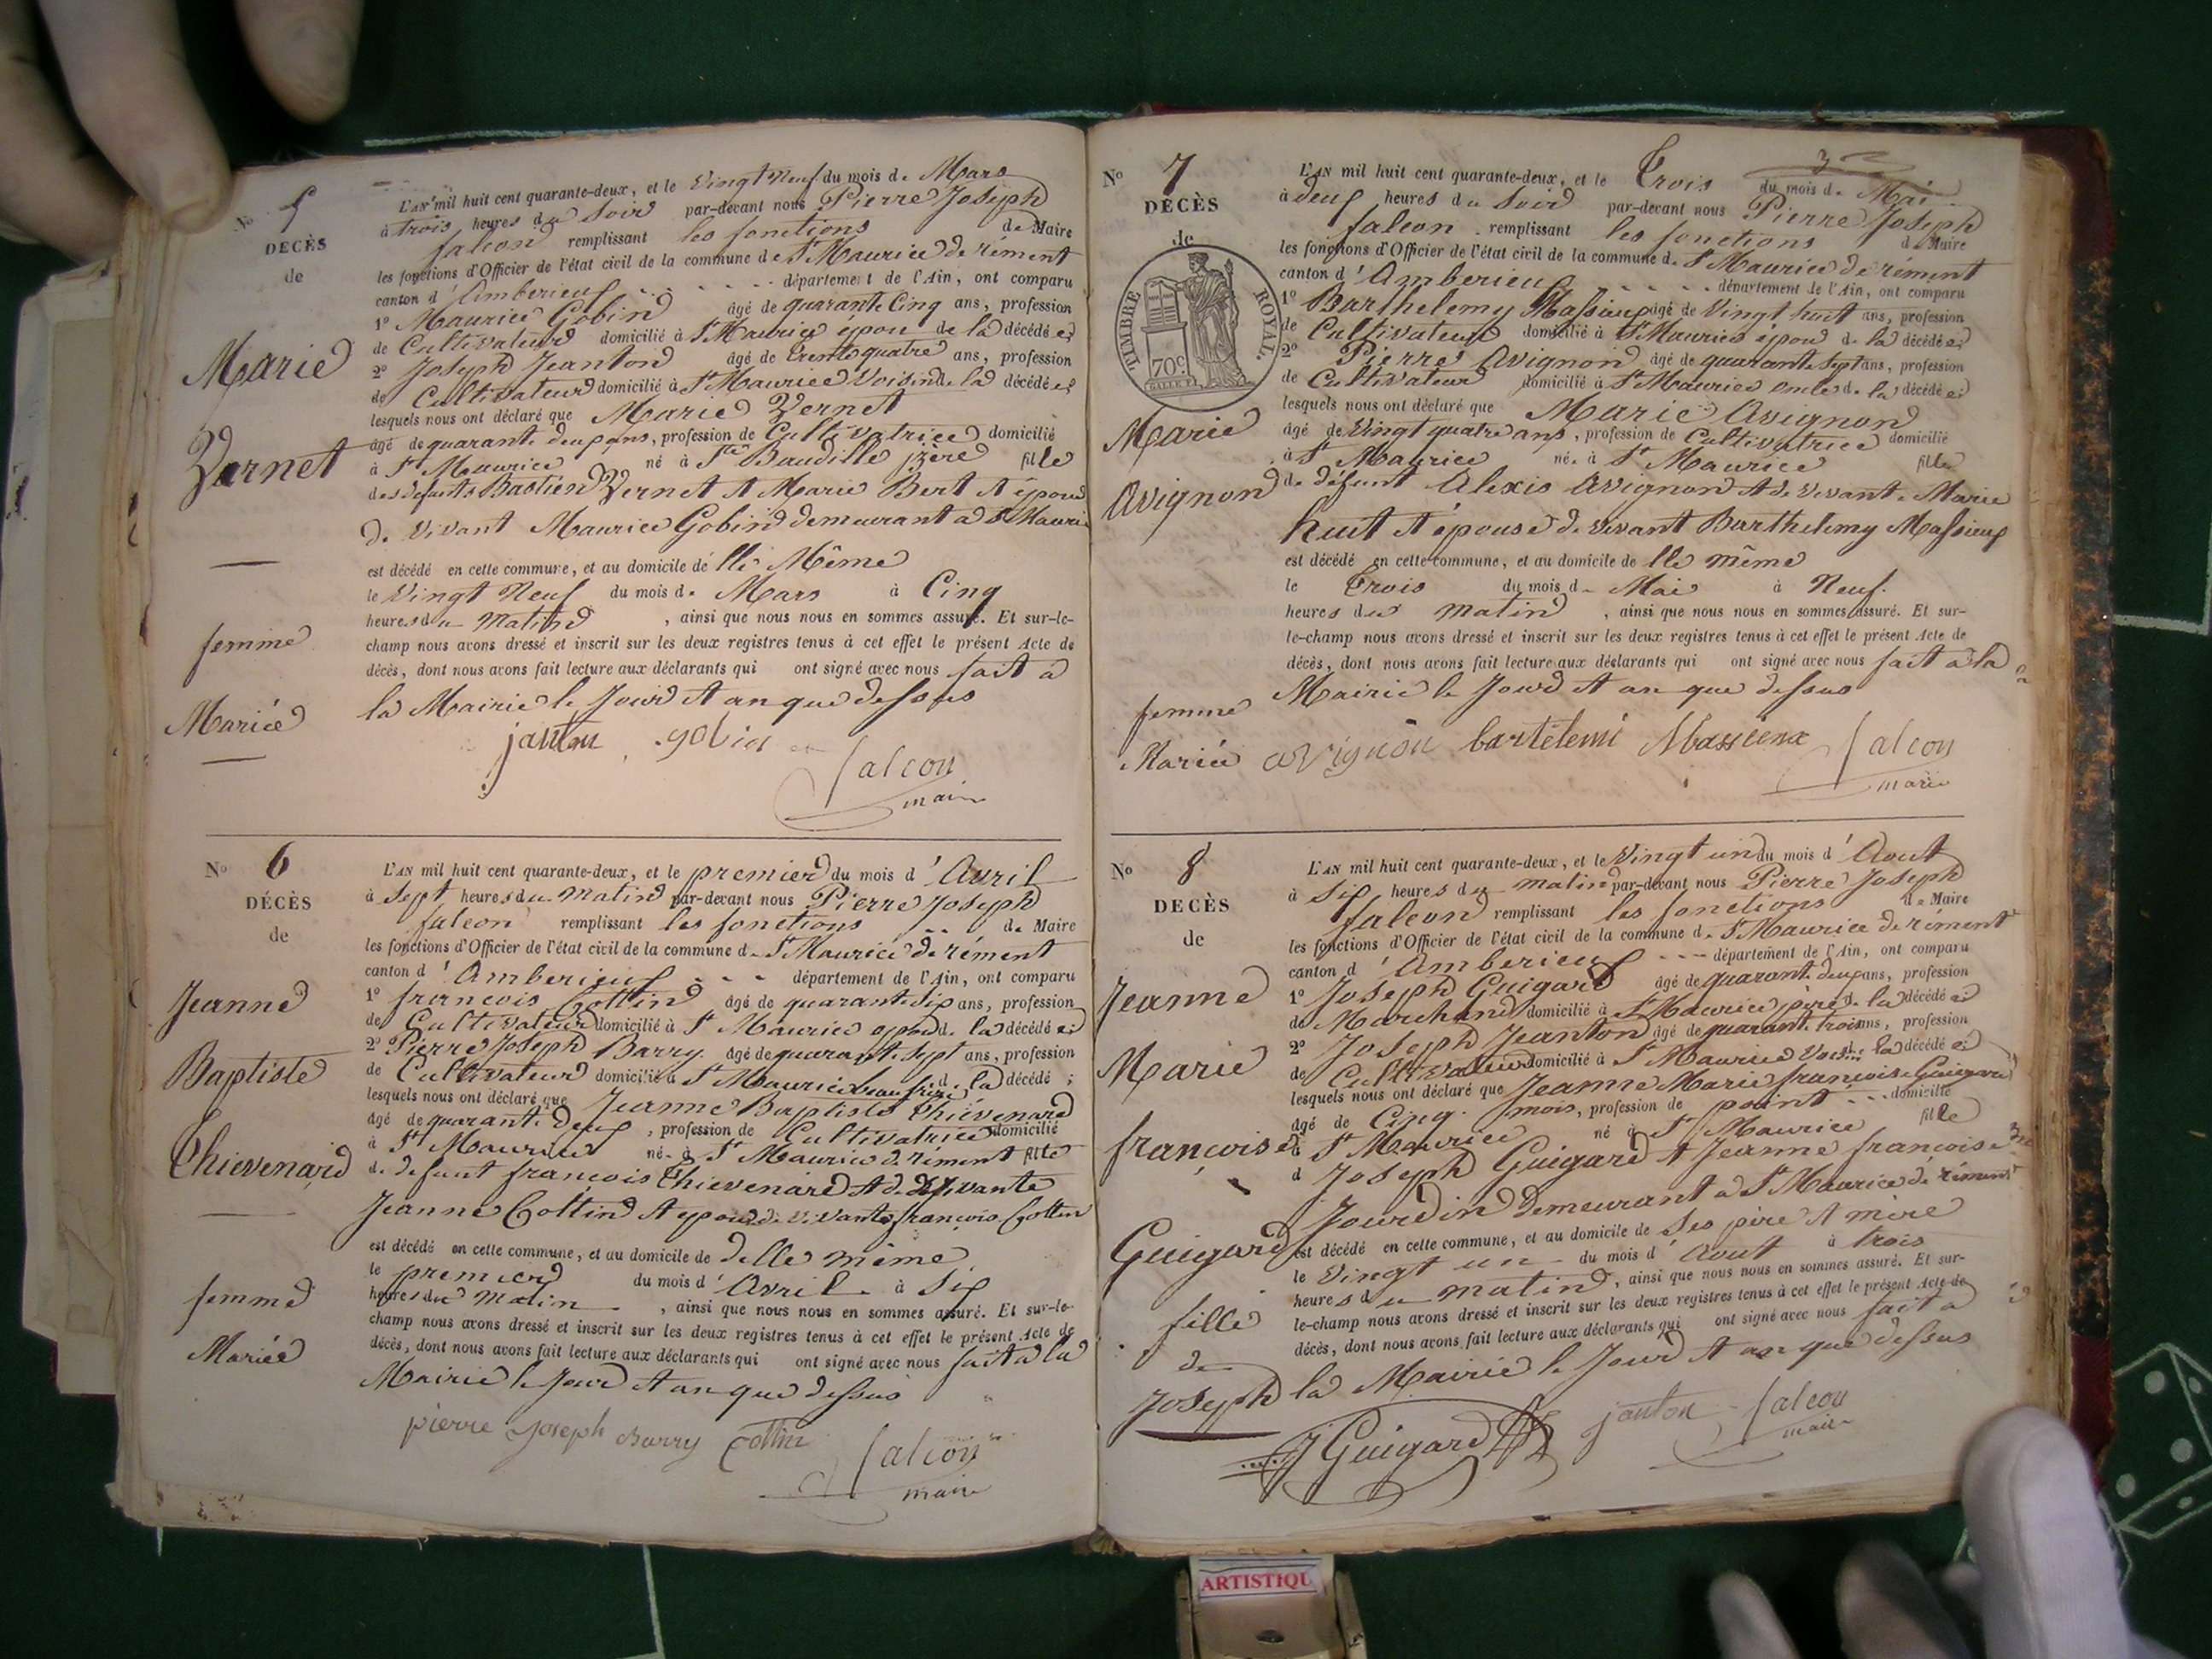 No 5
DECÈS
de
Marie
Vernet
femme
Mariée
L'AN mil huit cent quarante-deux, et le Vingt Neuf du mois de Mars
à trois heures du Soir par-devant nous Pierre Joseph
falcon remplissant les fonctions de Maire
les fonctions d'Officier de l'état civil de la commune de St Maurice de rément
canton d'Amberieux département de l'Ain, ont comparu
1º Maurice Gobin âgé de quarante Cinq ans, profession
de Cultivateur domicilié à St Maurice epou de la décédée;
2º Joseph Jeanton âgé de trente quatre ans, profession
de Cultivateur domicilié à St Maurice Voisin de la décédée;
lesquels nous ont déclaré que Marie Vernet
âgé de quarante deux ans, profession de Cultivatrice domicilié
à St Maurice né à Ste Baudille fille
des defunts Bastien Vernet et Marie Bert et épouse
de Vivant Maurice Gobin demeurant a St Maurice
est décédé en cette commune, et au domicile de lle Même
le Vingt Neuf du mois de Mars à Cinq
heures du Matin, ainsi que nous nous en sommes assuré. Et sur-le-
champ nous avons dressé et inscrit sur les deux registres tenus à cet effet le présent Acte de
décès, dont nous avons fait lecture aux déclarants qui ont signé avec nous fait a
la Mairie le Jour et an que dessus
janton gobin
falcon
maire
No 6
DÉCÈS
de
Jeanne
Baptiste
Thievenard
femme
Mariée
L'AN mil huit cent quarante-deux, et le premier du mois d'Avril
à Sept heures du matin par-devant nous Pierre Joseph
falcon remplissant les fonctions de Maire
les fonctions d'Officier de l'état civil de la commune de St Maurice de rément
canton d'Amberieux département de l'Ain, ont comparu
1º francois Cottin âgé de quarante Six ans, profession
de Cultivateur domicilié à St Maurice epou de la décédée;
2º Pierre Joseph Barry âgé de quarante Sept ans, profession
de Cultivateur domicilié à St Maurice beau frère de la décédé;
lesquels nous ont déclaré que Jeanne Baptiste Thievenard
âgé de quarante Deux, profession de Cultivatrice domicilié
à St Maurice née à St Maurice de rément fille
de defunt francois Thievenard et de Vivante
Jeanne Cottin et epouse de Vivant francois Cottin
est décédé en cette commune, et au domicile de delle même
le premier du mois d'Avril à Six
heures du Matin, ainsi que nous nous en sommes assuré. Et sur-le-
champ nous avons dressé et inscrit sur les deux registres tenus à cet effet le présent Acte de
décès, dont nous avons fait lecture aux déclarants qui ont signé avec nous fait a la
Mairie le Jour et an que dessus
pierre joseph Barry Cottin
falcon
maire
3
No 7
DÉCÈS
de
TIMBRE ROYAL.
70c
Marie
Avignon
femme
Mariée
L'AN mil huit cent quarante-deux, et le Trois du mois de Mai
à deux heures du Soir par-devant nous Pierre Joseph
falcon remplissant les fonctions de Maire
les fonctions d'Officier de l'état civil de la commune de St Maurice de rément
canton d'Amberieux département de l'Ain, ont comparu
1º Barthelemy Massieux âgé de Vingt huit ans, profession
de Cultivateur domicilié à St Maurice époux de la décédée;
2º Pierre Avignon âgé de quarante Sept ans, profession
de Cultivateur domicilié à St Maurice oncle de la décédée;
lesquels nous ont déclaré que Marie Avignon
âgé de Vingt quatre ans, profession de Cultivatrice domicilié
à St Maurice née à St Maurice fille
de défunt Alexis Avignon et de Vivante Marie
huit et épouse de vivant Barthelemy Massieux
est décédé en cette commune, et au domicile de lle même
le Trois du mois de Mai à Neuf
heures du matin, ainsi que nous nous en sommes assuré. Et sur-
le-champ nous avons dressé et inscrit sur les deux registres tenus à cet effet le présent Acte de
décès, dont nous avons fait lecture aux déclarants qui ont signé avec nous fait a la
Mairie le Jour et an que dessus
avignon bartelemi Massieux
falcon
maire
No 8
DECÈS
de
Jeanne
Marie
françoise
Guigard
fille
de
Joseph
L'AN mil huit cent quarante-deux, et le Vingt un du mois d'Aout
à Six heures du matin par-devant nous Pierre Joseph
falcon remplissant les fonctions de Maire
les fonctions d'Officier de l'état civil de la commune de St Maurice de rément
canton d'Amberieux département de l'Ain, ont comparu
1º Joseph Guigard âgé de quarante deux ans, profession
de Marchand domicilié à St Maurice père de la décédée
2º Joseph Jeanton âgé de quarante trois ans, profession
de Cultivateur domicilié à St Maurice Voisin de la décédée
lesquels nous ont déclaré que Jeanne Marie francoise Guigard
âgé de Cinq mois, profession de point domicilié
à St Maurice né à St Maurice fille
d Joseph Guigard et Jeanne francoise
Jourdin demeurant a St Maurice de rément
est décédé en cette commune, et au domicile de Ses père et mère
le Vingt un du mois d'Aout à trois
heures du matin, ainsi que nous nous en sommes assuré. Et sur-
le-champ nous avons dressé et inscrit sur les deux registres tenus à cet effet le présent Acte de
décès, dont nous avons fait lecture aux déclarants qui ont signé avec nous fait a
la Mairie le Jour et an que dessus
J Guigard janton falcon
maire
ARTISTIQU